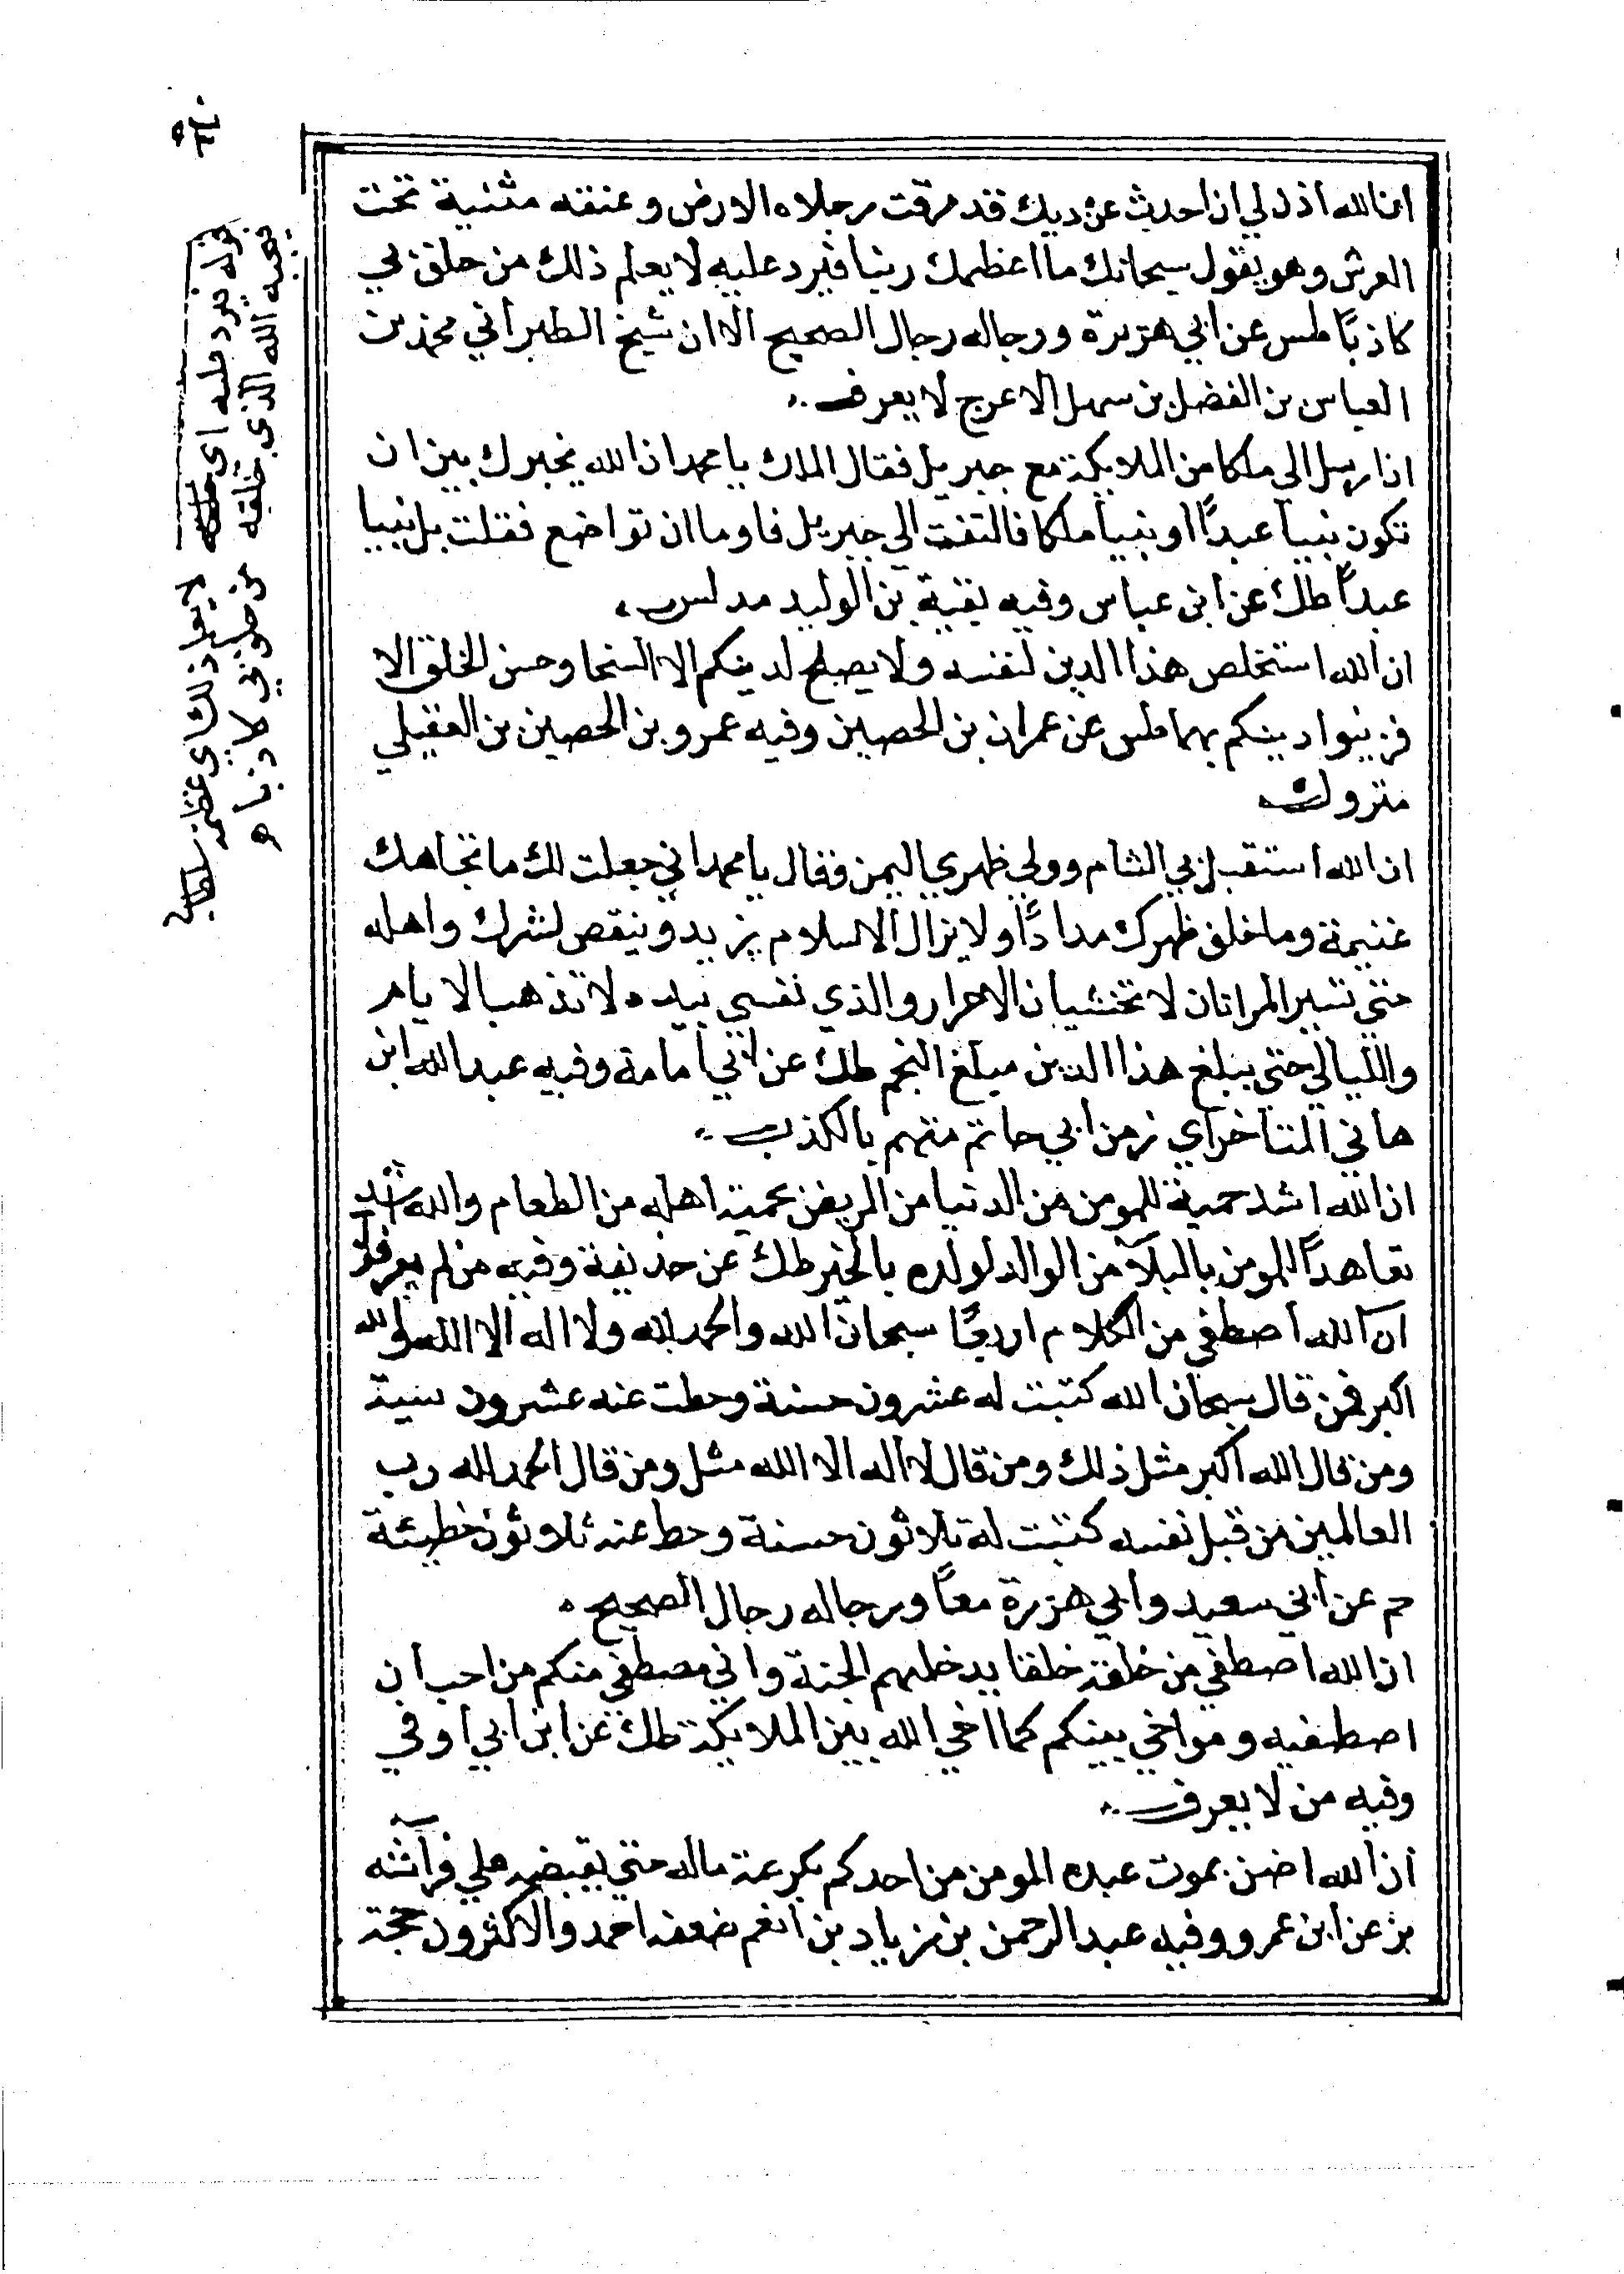 ان الله اذن لي ان احدث عن ديك قد مرقت رجلاه الارض وعنقه مثنية تحت
العرش وهو يقول سبحانك ما اعظمك ربنا فيرد عليه لا يعلم ذلك من حلف بي
كاذبًا طس عن ابي هريرة ورجاله رجال الصحيح الا ان شيخ الطبراني محمد بن
العباس بن الفضل بن سهيل الاعرج لا يعرف
ان ارسل الي ملكا من الملايكة مع جبريل فقال الملك يا محمد ان الله يخيرك بين ان
تكون نبيا عبدًا او نبيا ملكا فالتفت الي جبريل فاوما ان تواضع فقلت بل نبيا
عبدًا طك عن ابن عباس وفيه بقية بن الوليد مدلس
ان الله استخلص هذا الدين لنفسه ولا يصلح لدينكم الا السخا وحسن الخلق الا
فزينوا دينكم بهما طس عن عمران بن الحصين وفيه عمرو بن الحصين بن العقيلي
متروك
ان الله استقبل بي الشام وولي ظهري اليمن فقال يا محمد اني جعلت لك ما تجاهك
غنيمة وما خلف ظهرك مدادًا ولا يزال الاسلام يزيد وينقص لشرك واهله
حتي تسير المراتان لا تخشيان الا حرار والذي نفسي بيده لا تذهب الايام
والليالي حتي يبلغ هذا الدين مبلغ النجم طك عن ابي امامة وفيه عبد الله ابن
هاني المتاخر اي زمن ابي حاتم متهم بالكذب
ان الله اشد حمية للمومن من الدنيا من المريض حمية اهله من الطعام والله اشد
تعاهدًا للمومن بالبلاء من الوالد لولده بالخير طك عن حذيفة وفيه من لم يعرفوا
ان الله اصطفي من الكلام اربعًا سبحان الله والحمد لله ولا اله الا الله والله
اكبر فمن قال سبحان الله كتبت له عشرون حسنة وحطت عنه عشرون سية
ومن قال الله اكبر مثل ذلك ومن قال لا اله الا الله مثل ومن قال الحمد لله رب
العالمين من قبل نفسه كتبت له ثلاثون حسنة وحط عنه ثلاثون خطيئة
حم عن ابي سعيد وابي هريرة معًا ورجاله رجال الصحيح
ان الله اصطفي من خلقه خلقا يدخلهم الجنة واني مصطفي منكم من احب ان
اصطفيه ومواخي بينكم كما اخي الله بين الملايكة طك عن ابن ابي اوفي
وفيه من لا يعرف
ان الله اضن بموت عبده المومن من احدكم بكريمة ماله حتي يقبضه علي فراشه
بز عن ابن عمرو وفيه عبد الرحمن بن زياد بن انعم ضعفه احمد والاكثرون حجة
قوله فيرد عليه اي
الله الذي خلقه
لا يعلم ذلك اي عظمة
من حلف بي كاذبا